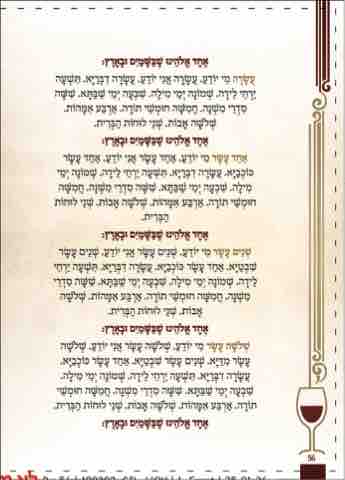 אֶחָד אֱלֹהֵינוּ שֶׁבַּשָּׁמַיִם וּבָאָרֶץ:
עֲשָׂרָה מִי יוֹדֵעַ, עֲשָׂרָה אֲנִי יוֹדֵעַ, עֲשָׂרָה דִבְּרַיָּא, תִּשְׁעָה
יַרְחֵי לֵידָה, שְׁמוֹנָה יְמֵי מִילָה, שִׁבְעָה יְמֵי שַׁבַּתָּא, שִׁשָּׁה
סִדְרֵי מִשְׁנָה, חֲמִשָּׁה חוּמְשֵׁי תוֹרָה, אַרְבַּע אִמָּהוֹת,
שְׁלֹשָׁה אָבוֹת, שְׁנֵי לוּחוֹת הַבְּרִית,
אֶחָד אֱלֹהֵינוּ שֶׁבַּשָּׁמַיִם וּבָאָרֶץ:
אַחַד עָשָׂר מִי יוֹדֵעַ, אַחַד עָשָׂר אֲנִי יוֹדֵעַ, אַחַד עָשָׂר
כּוֹכְבַיָּא, עֲשָׂרָה דִבְּרַיָּא, תִּשְׁעָה יַרְחֵי לֵידָה, שְׁמוֹנָה יְמֵי
מִילָה, שִׁבְעָה יְמֵי שַׁבַּתָּא, שִׁשָּׁה סִדְרֵי מִשְׁנָה, חֲמִשָּׁה
חוּמְשֵׁי תוֹרָה, אַרְבַּע אִמָּהוֹת, שְׁלֹשָׁה אָבוֹת, שְׁנֵי לוּחוֹת
הַבְּרִית,
אֶחָד אֱלֹהֵינוּ שֶׁבַּשָּׁמַיִם וּבָאָרֶץ:
שְׁנֵים עָשָׂר מִי יוֹדֵעַ, שְׁנֵים עָשָׂר אֲנִי יוֹדֵעַ, שְׁנֵים עָשָׂר
שִׁבְטַיָּא, אַחַד עָשָׂר כּוֹכְבַיָּא, עֲשָׂרָה דִבְּרַיָּא, תִּשְׁעָה יַרְחֵי
לֵידָה, שְׁמוֹנָה יְמֵי מִילָה, שִׁבְעָה יְמֵי שַׁבַּתָּא, שִׁשָּׁה סִדְרֵי
מִשְׁנָה, חֲמִשָּׁה חוּמְשֵׁי תוֹרָה, אַרְבַּע אִמָּהוֹת, שְׁלֹשָׁה
אָבוֹת, שְׁנֵי לוּחוֹת הַבְּרִית,
אֶחָד אֱלֹהֵינוּ שֶׁבַּשָּׁמַיִם וּבָאָרֶץ:
שְׁלֹשָׁה עָשָׂר מִי יוֹדֵעַ, שְׁלֹשָׁה עָשָׂר אֲנִי יוֹדֵעַ, שְׁלֹשָׁה
עָשָׂר מִדַּיָּא, שְׁנֵים עָשָׂר שִׁבְטַיָּא, אַחַד עָשָׂר כּוֹכְבַיָּא,
עֲשָׂרָה דִבְּרַיָּא, תִּשְׁעָה יַרְחֵי לֵידָה, שְׁמוֹנָה יְמֵי מִילָה,
שִׁבְעָה יְמֵי שַׁבַּתָּא, שִׁשָּׁה סִדְרֵי מִשְׁנָה, חֲמִשָּׁה חוּמְשֵׁי
תוֹרָה, אַרְבַּע אִמָּהוֹת, שְׁלֹשָׁה אָבוֹת, שְׁנֵי לוּחוֹת הַבְּרִית,
אֶחָד אֱלֹהֵינוּ שֶׁבַּשָּׁמַיִם וּבָאָרֶץ:
56